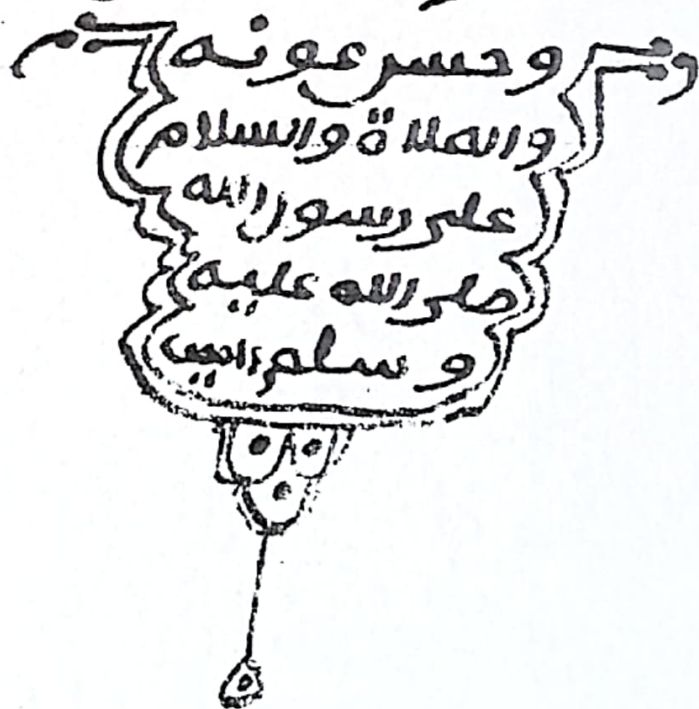 وحسن عونه
والصلاة والسلام
على رسول الله
صلى الله عليه
وسلم